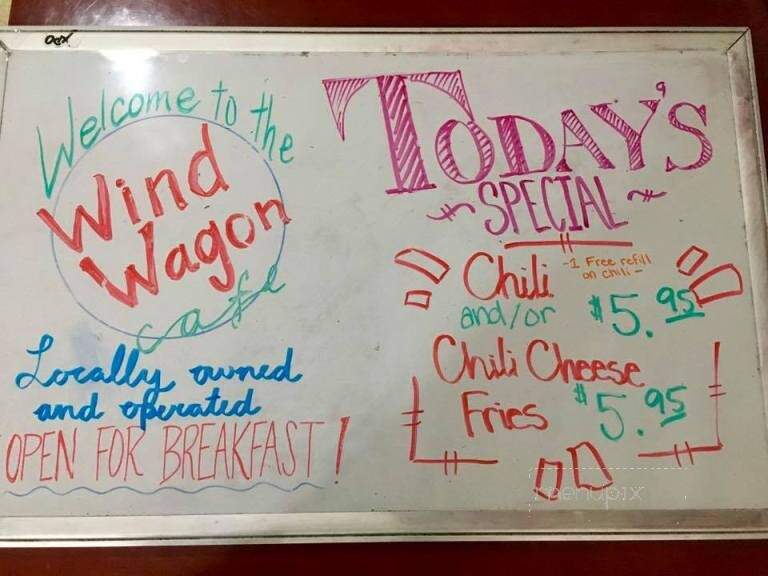 Welcome to the
Wind
Wagon
cafe
Locally owned
and operated
OPEN FOR BREAKFAST!
TODAY'S
~SPECIAL~
Chili
-1 Free refill
on chili-
and/or $5.95
Chili Cheese
Fries $5.95
menupix